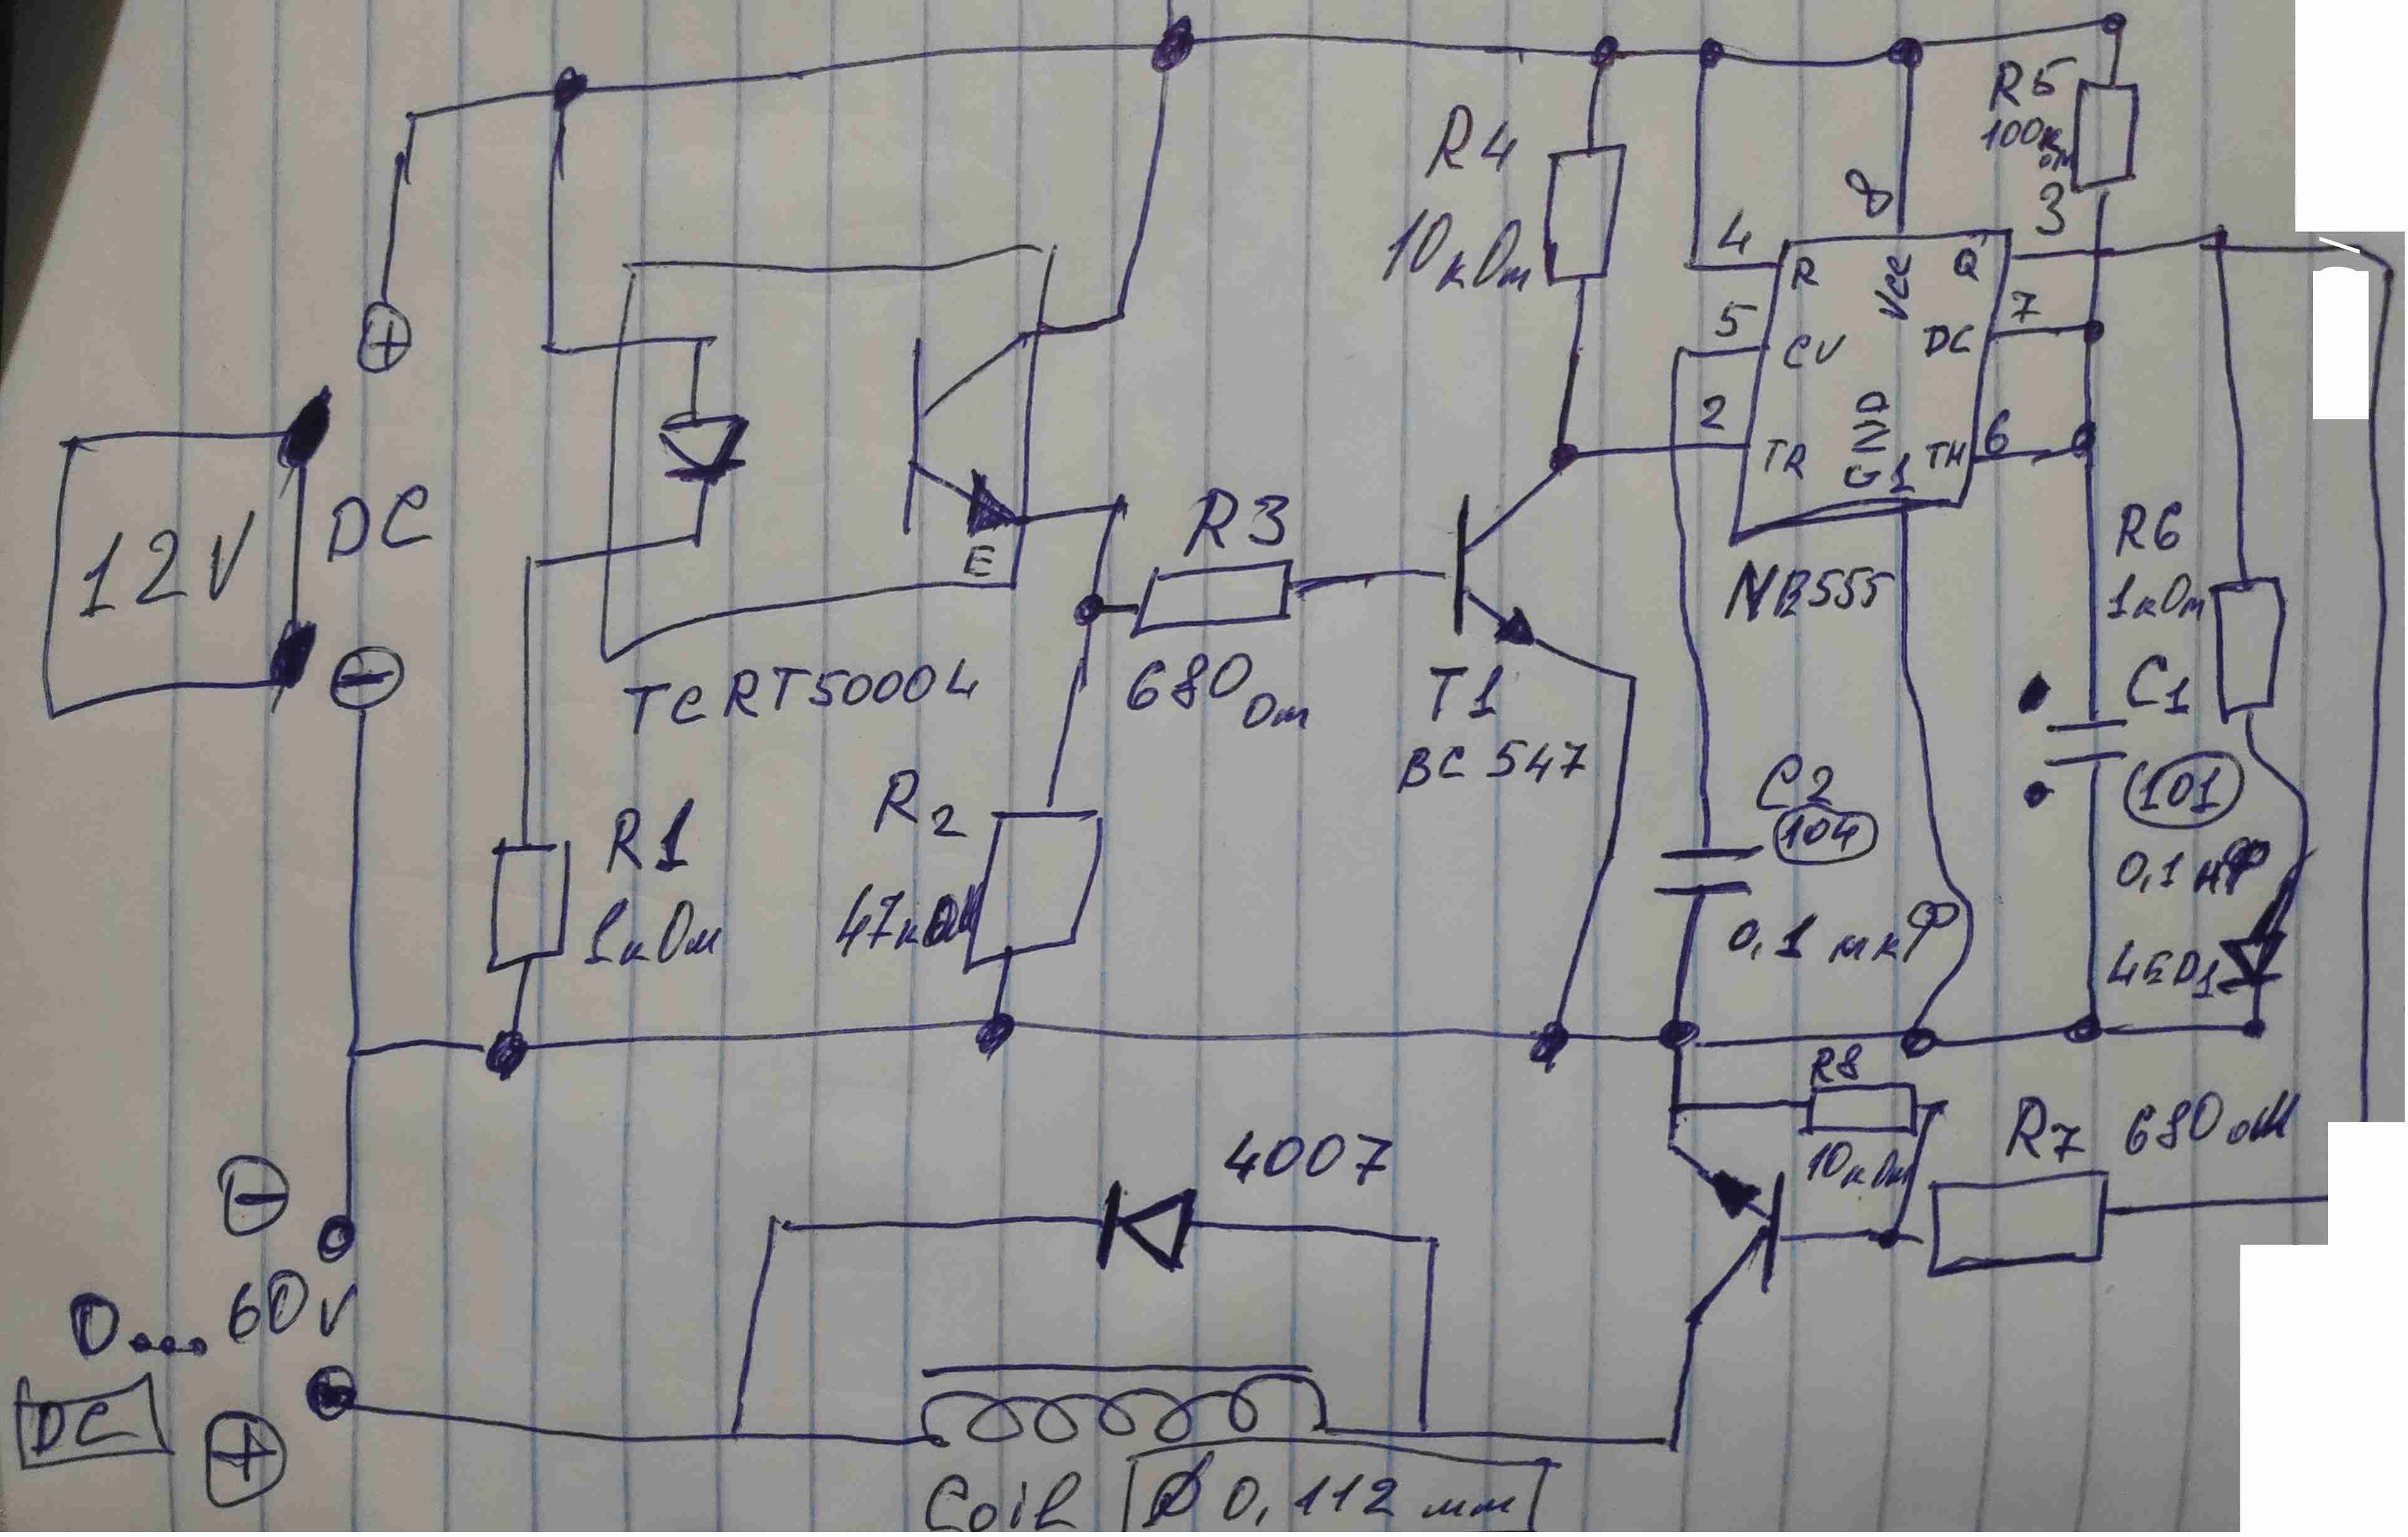 R5
100к
ом
R4
10кОм
8
3
4
R
Vcc
Q
5
CV
DC
7
2
TR
GND
1
TH
6
+
12V
DC
−
E
R3
680 Ом
TCRT5000L
T1
BC 547
NE555
R6
1кОм
C1
101
0,1 нФ
C2
104
0,1 мкФ
LED1
R1
1кОм
R2
47кОм
R8
10кОм
R7 680 ОМ
4007
−
0... 60V
DC
+
Coil Ø 0,112 мм